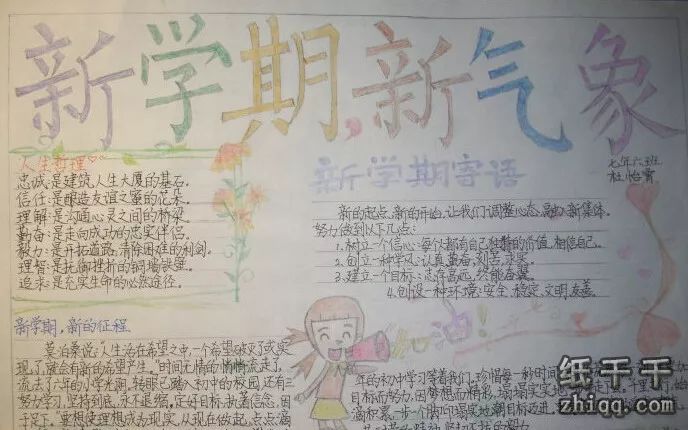 新学期,新气象
人生哲理
忠诚:是建筑人生大厦的基石。
信任:是酿造友谊之蜜的花朵。
理解:是沟通心灵之间的桥梁。
勤奋:是走向成功的忠实伴侣。
毅力:是开拓道路,清除困难的利剑。
理智:是抵御挫折的铜墙铁壁。
追求:是充实生命的必然途径。
新学期寄语
七年六班
新的起点,新的开始,让我们调整心态,融入新集体。
努力做到以下几点:
1.树立一个信心:每个人都有自己独特的价值,相信自己。
2.创立一种学风:认真,勤奋,刻苦,求实。
3.建立一个目标:志存高远,终能奋翼。
4.创设一种环境:安全,稳定,文明,友善。
新学期,新的征程
莫泊桑说:"人生活在希望之中,一个希望破灭了或实
现了,就会有新的希望产生。"时间无情的悄悄走了,
流去了六年的小学光阴,转眼已踏入初中的校园,还有三
努力学习,坚持到底,永不退缩,定好目标,执著信念,因
于足下。"要想使理想成为现实,从现在做起,点点滴
加油!
年的初中学习等着我们,珍惜每一秒时间
目标而努力,因梦想而精彩,塌塌实实
滴积累,一步一个脚印塌实地朝目标迈进,
纸千千
zhiqq.com